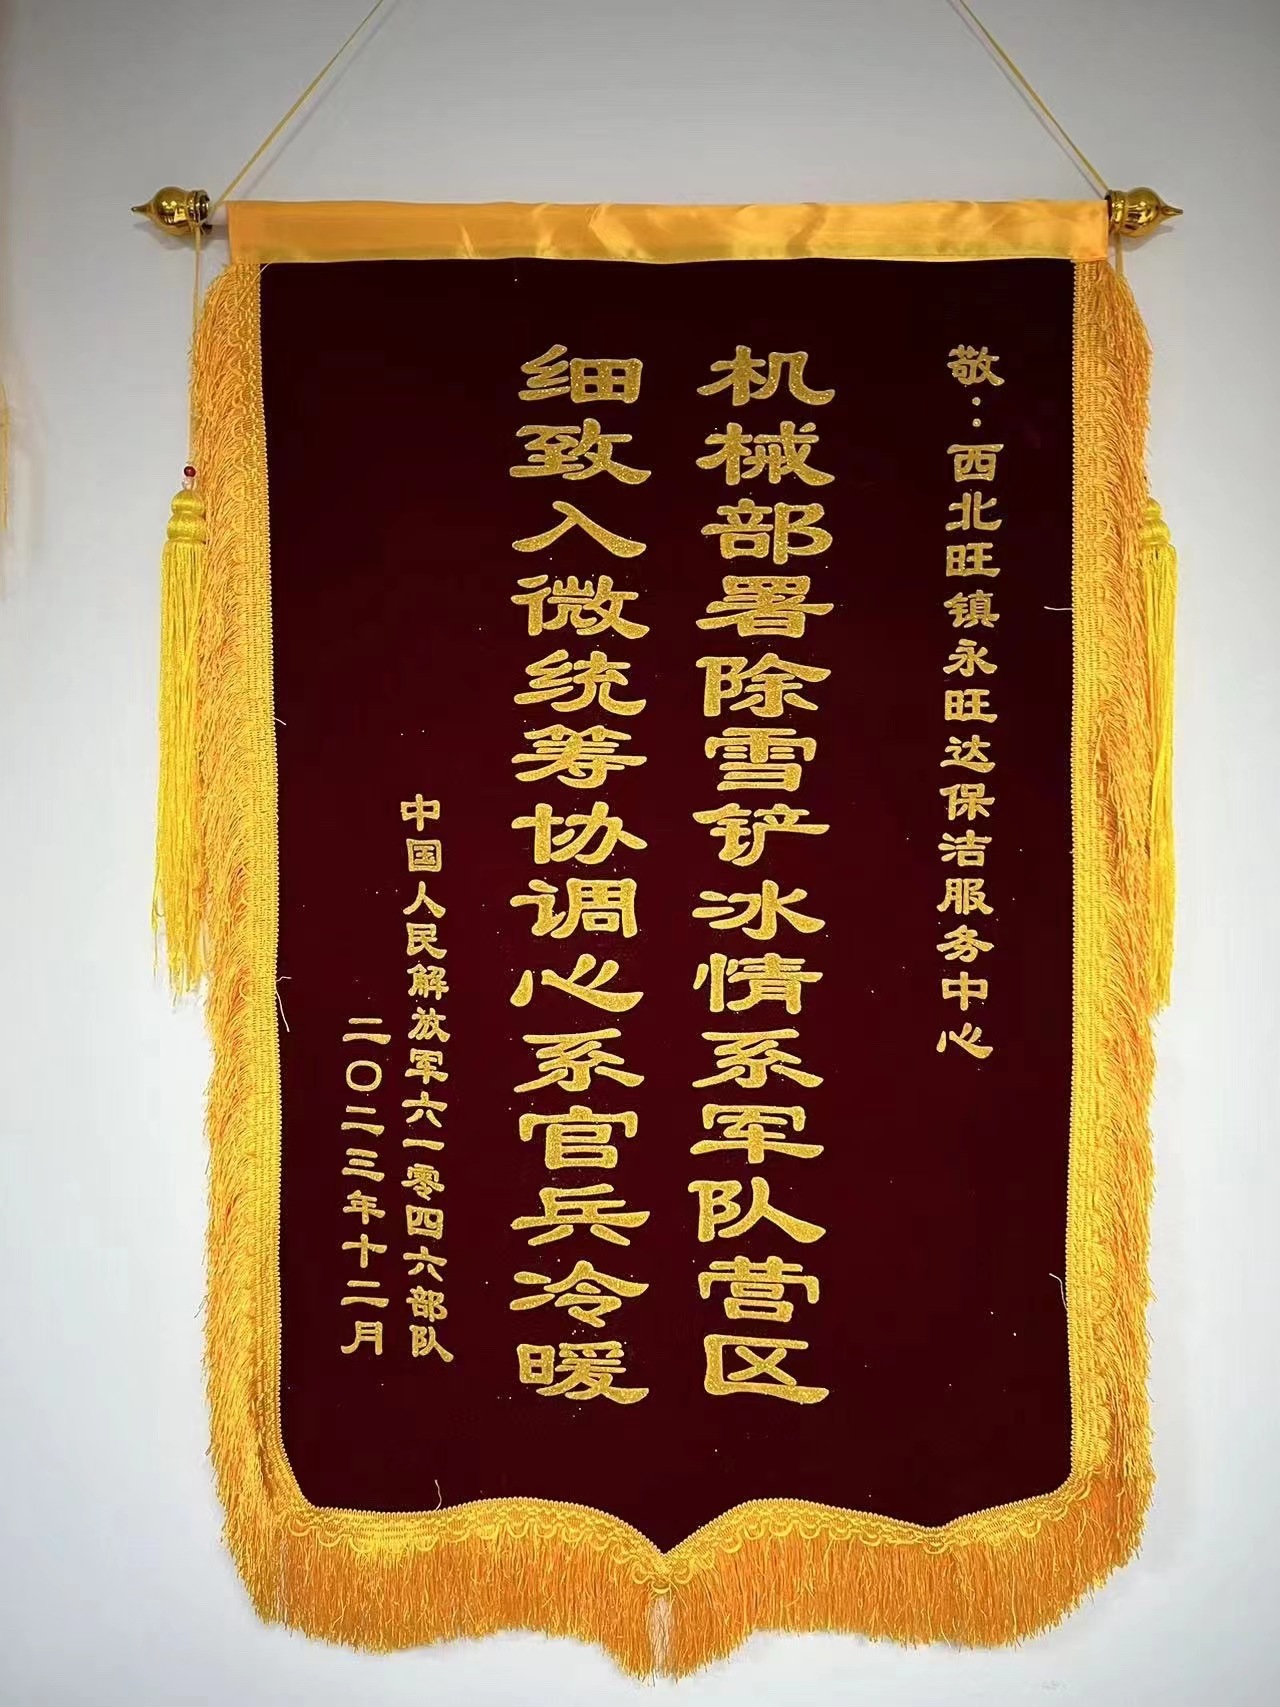 敬：西北旺镇永旺达保洁服务中心
机械部署除雪铲冰情系军队营区
细致入微统筹协调心系官兵冷暖
中国人民解放军六一零四六部队
二〇二三年十二月